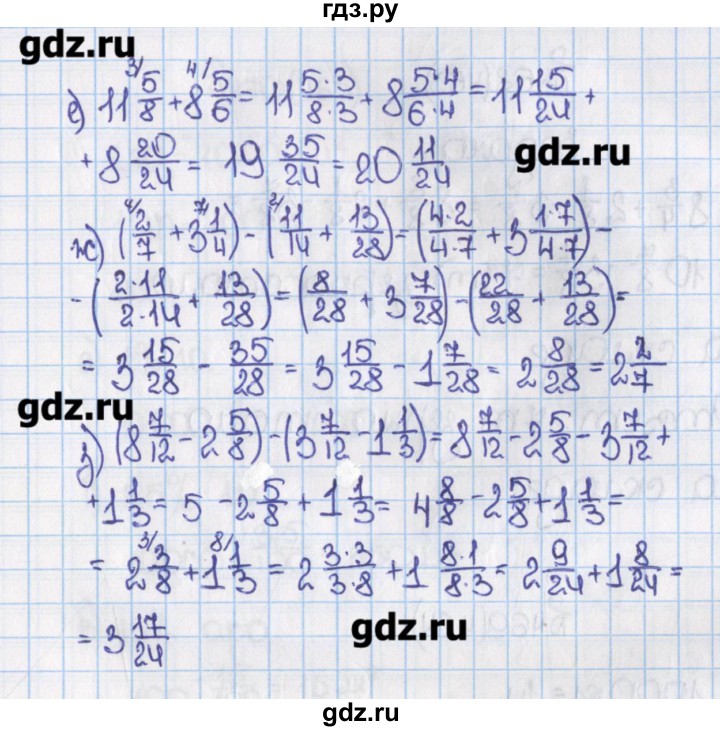 гдз.ру
gdz.ru
е) 11 5/8 (3/) + 8 5/6 (4/) = 11 5·3/8·3 + 8 5·4/6·4 = 11 15/24 +
+ 8 20/24 = 19 35/24 = 20 11/24
gdz.ru
ж) (2/7 (4/) + 3 1/4 (7/)) - (11/14 (2/) + 13/28) = (4·2/4·7 + 3 1·7/4·7) -
- (2·11/2·14 + 13/28) = (8/28 + 3 7/28) - (22/28 + 13/28) =
= 3 15/28 - 35/28 = 3 15/28 - 1 7/28 = 2 8/28 = 2 2/7
gdz.ru
з) (8 7/12 - 2 5/8) - (3 7/12 1 1/3) = 8 7/12 - 2 5/8 - 3 7/12 +
+ 1 1/3 = 5 - 2 5/8 + 1 1/3 = 4 8/8 - 2 5/8 + 1 1/3 =
= 2 3/8 (3/) + 1 1/3 (8/) = 2 3·3/3·8 + 1 8·1/8·3 = 2 9/24 + 1 8/24 =
= 3 17/24
gdz.ru
gdz.ru